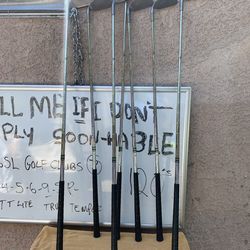 LL ME IF I DON'T
PLY SOON-HABLE
SL GOLF CLUBS
4-5-6-9-
TT LITE TRUE TEMPE